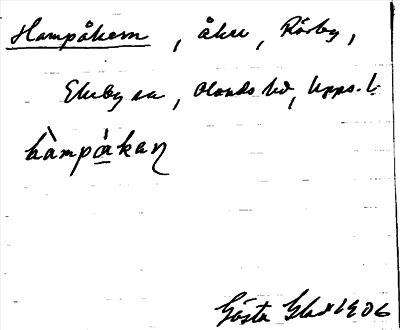 Hampåkern, åker, Rörby,
Ekeby sn, Olands hd, Upps. l.
hàmpåkaꞃ
Gösta 1906